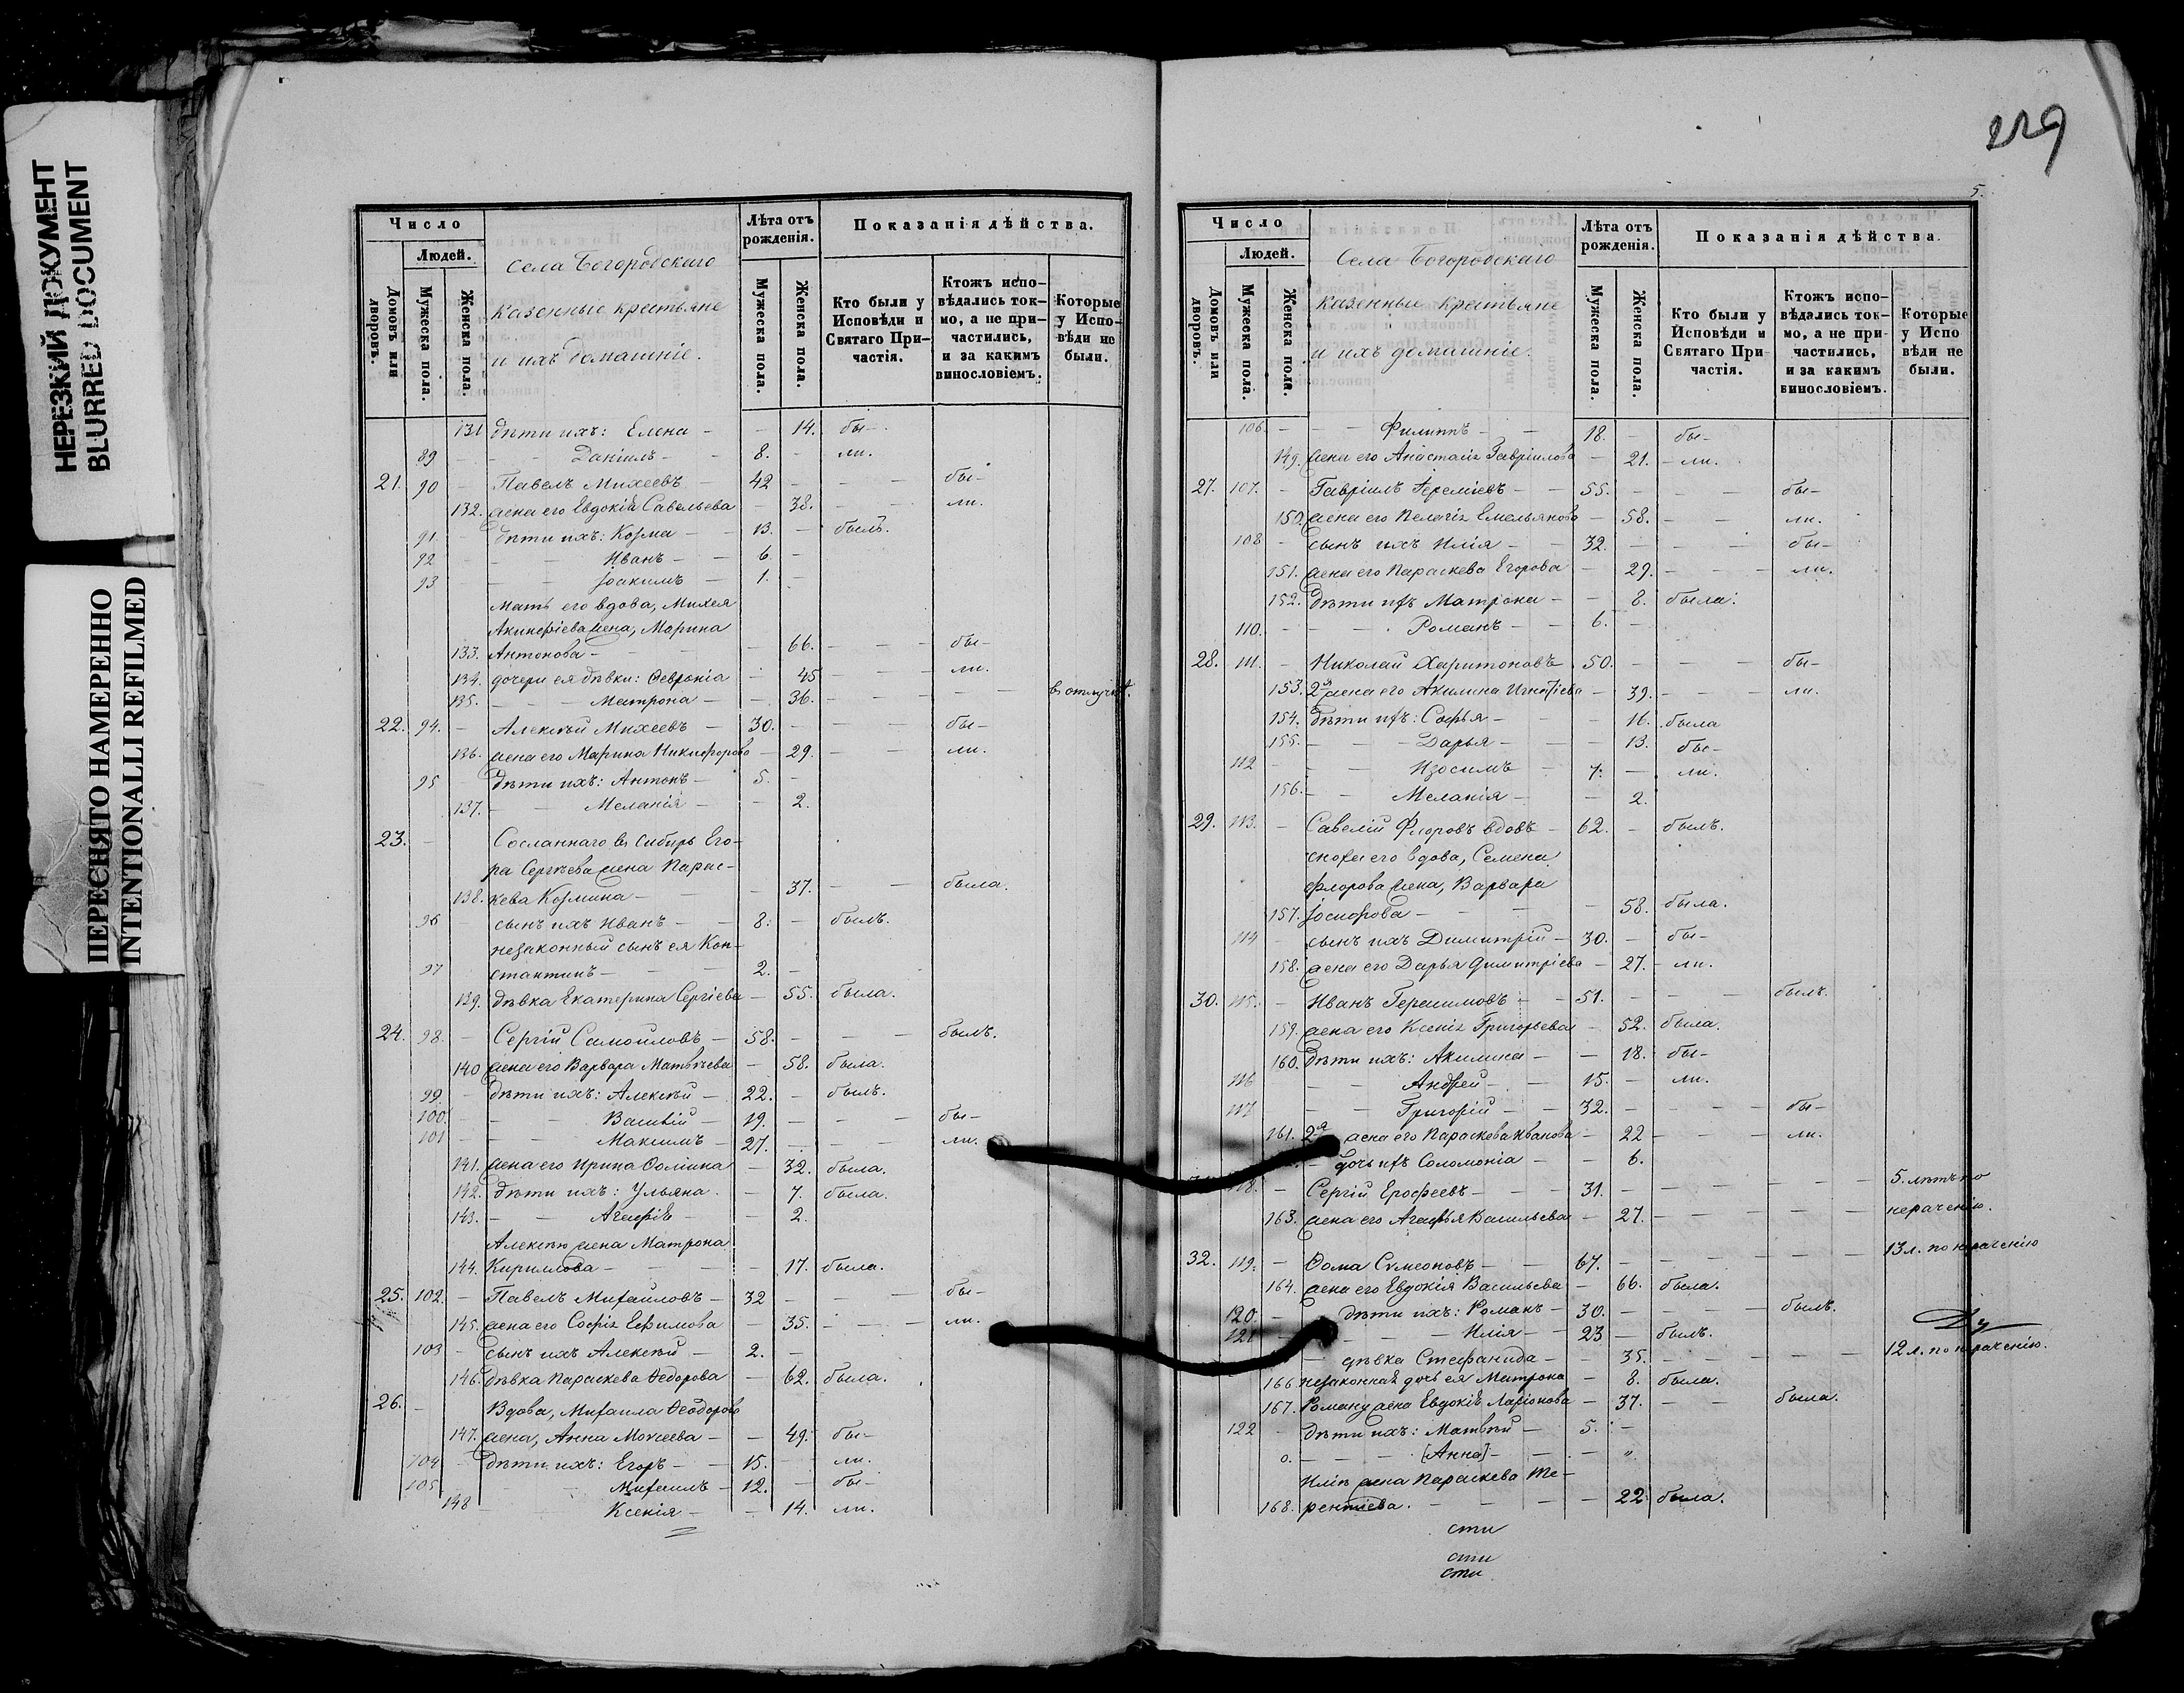 НЕРЕЗКИЙ ДОКУМЕНТ
BLURRED DOCUMENT
ПЕРЕСНЯТО НАМЕРЕННО
INTENTIONALLI REFILMED
Число
Людей.
Домовъ или дворовъ.
Мужеска пола.
Женска пола.
Села Богородскаго
казенные крестьяне
и ихъ домашніе.
Лѣта отъ рожденія.
Мужеска пола.
Женска пола.
Показанія дѣйства.
Кто были у Исповѣди и Святаго Причастія.
Ктожъ исповѣдались токмо, а не причастились, и за какимъ винословіемъ.
Которые у Исповѣди не были.
131 дѣти ихъ: Елена - - 14. бы-
89 - - Даніилъ - 8. - ли.
21. 90 - Павелъ Михеевъ - 42 - - - бы-
132. жена его Евдокія Савельева - 38. - - ли.
91 - дѣти ихъ: Козма - 13. - былъ.
92 - - Иванъ - 6. -
93 - - Іоакимъ - 1. -
Мать его вдова, Михея
Акинфіева жена, Марина
133. Антонова - - 66. - - бы-
134. дочери ея дѣвки: Ѳевронія - 45 - - ли.
135. - - Матрона - - 36. - - - въ отлучкѣ.
22. 94. - Алексѣй Михеевъ - 30. - - - бы-
136. жена его Марина Никифорова - 29. - - ли.
95 дѣти ихъ: Антонъ - 5. -
137. - - Меланія - - 2.
23. - Сосланнаго въ Сибирь Его-
ра Сергѣева жена Парас-
138. кева Козмина - - 37. - - была.
96 - сынъ ихъ Иванъ - 8. - былъ.
незаконный сынъ ея Кон-
97 стантинъ - - 2. -
139. дѣвка Екатерина Сергіева - 55. была.
24. 98. - Сергій Самойловъ - 58. - - - былъ.
140 жена его Варвара Матвѣева - 58. была.
99. - дѣти ихъ: Алексѣй - 22. - былъ.
100. - - Василій - 19. - - - бы-
101 - - Максимъ - 27. - - - ли.
141. жена его Ирина Ѳомина - 32. была.
142. дѣти ихъ: Ульяна. - 7. была.
143. - - Агафія - - 2.
Алексѣю жена Матрона
144. Кириллова - - - 17. была.
25. 102. - Павелъ Михайловъ - 32 - - - бы-
145. жена его Софія Ефимова - 35. - - ли.
103 - сынъ ихъ Алексѣй - 2. -
146. дѣвка Параскева Ѳедорова - 62. была.
26. - Вдова, Михаила Ѳеодорова
147. жена, Анна Моисеева - - 49. бы-
104 - дѣти ихъ: Егоръ - 15. - ли.
105 - - Михаилъ - 12. - бы-
148 - Ксенія - - 14. ли.
229
5.
Число
Людей.
Домовъ или дворовъ.
Мужеска пола.
Женска пола.
Села Богородскаго
казенные крестьяне
и ихъ домашніе.
Лѣта отъ рожденія.
Мужеска пола.
Женска пола.
Показанія дѣйства.
Кто были у Исповѣди и Святаго Причастія.
Ктожъ исповѣдались токмо, а не причастились, и за какимъ винословіемъ.
Которые у Исповѣди не были.
106. - - Филиппъ - - 18. - бы-
149. жена его Анастасія Гавріилова - 21. - ли.
27. 107. - Гавріилъ Іереміевъ - - 55. - - - бы-
150. жена его Пелагія Емельянова - 58. - - ли.
108 - сынъ ихъ Илія - - 32. - - - бы-
151. жена его Параскева Егорова - 29. - - - ли.
152. дѣти ихъ Матрона - - 8. была.
110. - - Романъ - - 6. -
28. 111. - Николай Харитоновъ. 50. - - - бы-
153. 2я жена его Акилина Игнатіева - 39. - - - ли.
154. дѣти ихъ: Софья - - - 16. была
155. - - Дарья - - - 13. бы-
112 - - Изосимъ - 7. - ли.
156. - - Меланія - - 2.
29. 113. - Савелій Флоровъ вдовъ - 62. - былъ.
сноха его вдова, Семена
Флорова жена, Варвара
157. Іосифова - - - 58. была.
114 - сынъ ихъ Димитрій - 30. - бы-
158. жена его Дарья Димитріева - 27. - ли.
30. 115. - Иванъ Герасимовъ - - 51. - - - былъ.
159. жена его Ксенія Григорьева - 52. была.
160. дѣти ихъ: Акилина - - 18. бы-
116 - - Андрей - - 15. - ли.
117 - - Григорій - - 32. - - - бы-
161. 2я жена его Параскева Иванова - 22 - - - ли.
- дочь ихъ Соломонія - - 6.
118. - Сергій Ерофеевъ - - 31. - - - - 5. лѣтъ по
163. жена его Агафья Васильева - 27. - - - - нераченію.
32. 119. - Ѳома Сѵмеоновъ - - 67. - - - - 13 л. по нераченію
164. жена его Евдокія Васильева - 66. была.
120 - дѣти ихъ: Романъ - 30. - - - былъ.
121 - - Илія - - 23 - былъ.
- дѣвка Стефанида - - 35. - - - - 12 л. по нераченію.
166 незаконная дочь ея Матрона - 8. была.
167. Роману жена Евдокія Ларіонова - 37. - - была.
122 - дѣти ихъ: Матвѣй - 5. -
0. - - [Анна] - - - "
Иліи жена Параскева Те-
168. рентіева. - - - 22. была.
сти
сти
сти